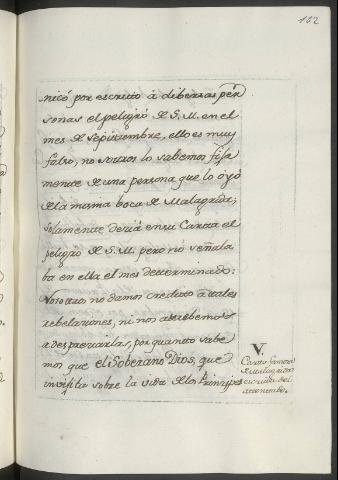 102
nicó por escrito à dibersas per
sonas el peligro de S. M. en el
mes de Septiembre, ello es muy
falso, no sotros lo sabemos fixa
mente de una persona que lo oyó
de la misma boca de Malagrida;
solamente decia en su Carta el
peligro de S. M. pero nó señala
ba en ella el mes determinado:
Vosotros no damos credito à tales
rebelaciones, ni nos atrebemos
a despreciarlas, por quanto sabe
mos que el Soberano Dios, que
invigila sobre la vida de los Principes
V.
Carta famosa
de Malagrida
escrita del